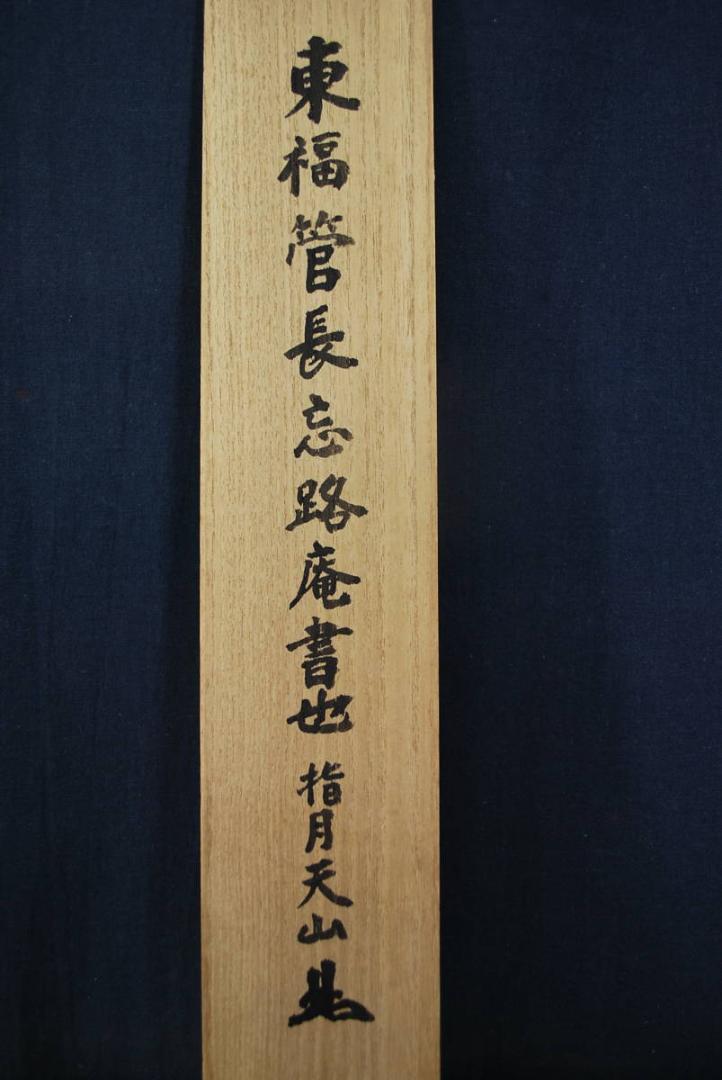 東福管長忘路庵書也 指月天山